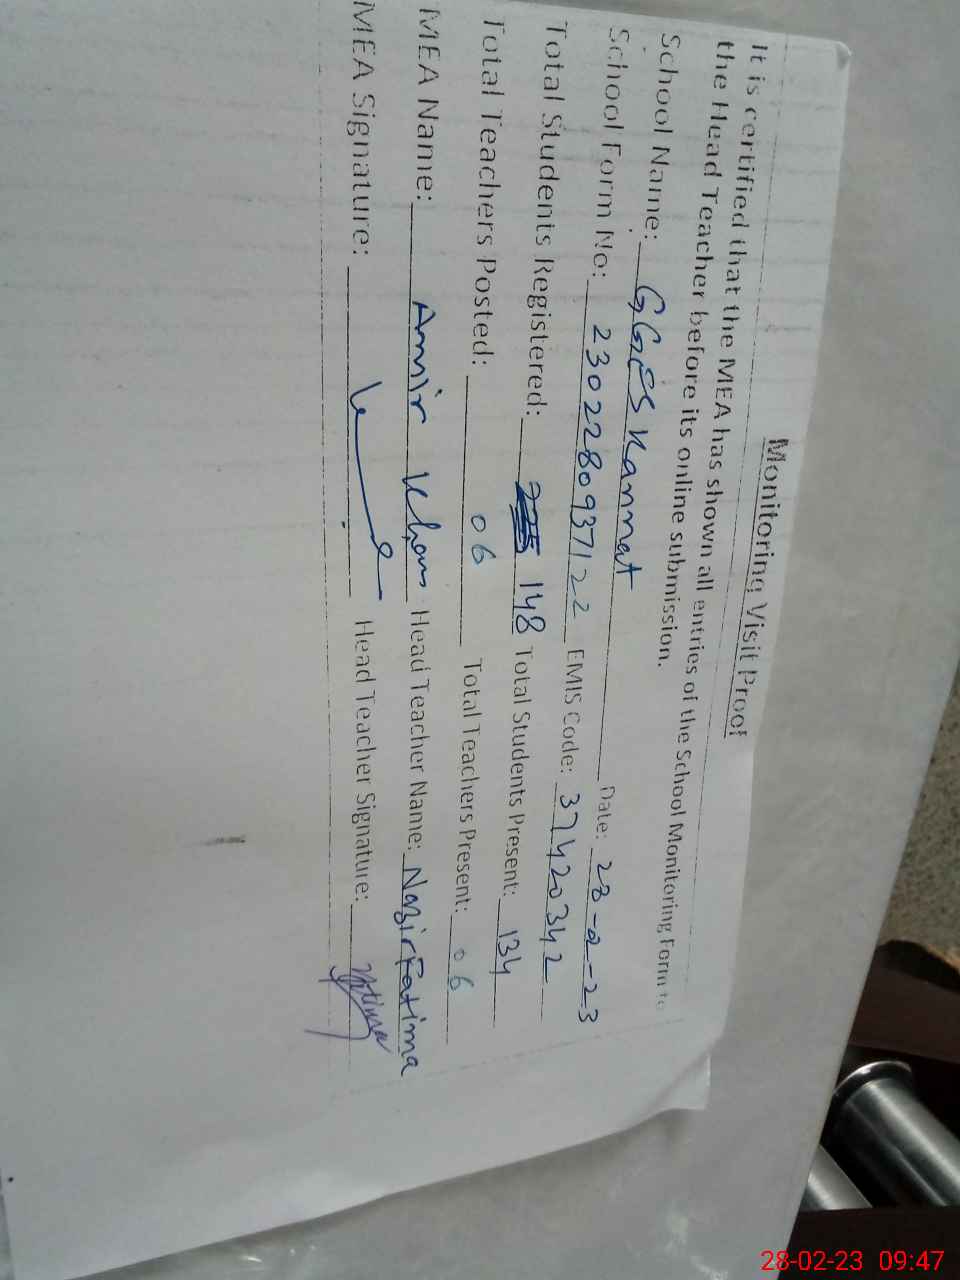 Monitoring Visit Proof
It is certified that the MEA has shown all entries of the School Monitoring Form to
the Head Teacher before its online submission.
School Name: GGES Kannat Date: 28-2-23
School Form No: 23022809937122 EMIS Code: 37420342
Total Students Registered: 148 Total Students Present: 134
Total Teachers Posted: 06 Total Teachers Present: 06
MEA Name: Amir Khan Head Teacher Name: Nazir Fatima
MEA Signature: Head Teacher Signature: Fatima
28-02-23 09:47